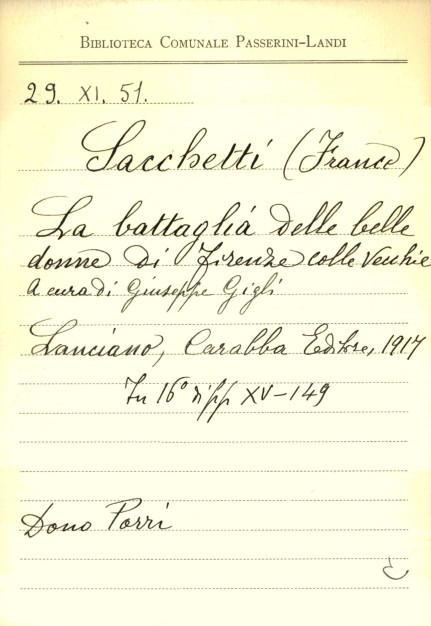 BIBLIOTECA COMUNALE PASSERINI-LANDI
29. XI. 51.
Sacchetti (Franco)
La battaglia delle belle
donne di Firenze colle vecchie
A cura di Giuseppe Gigli
Lanciano, Carabba Editore, 1917
In 16° di pp XV-149
Dono Porri